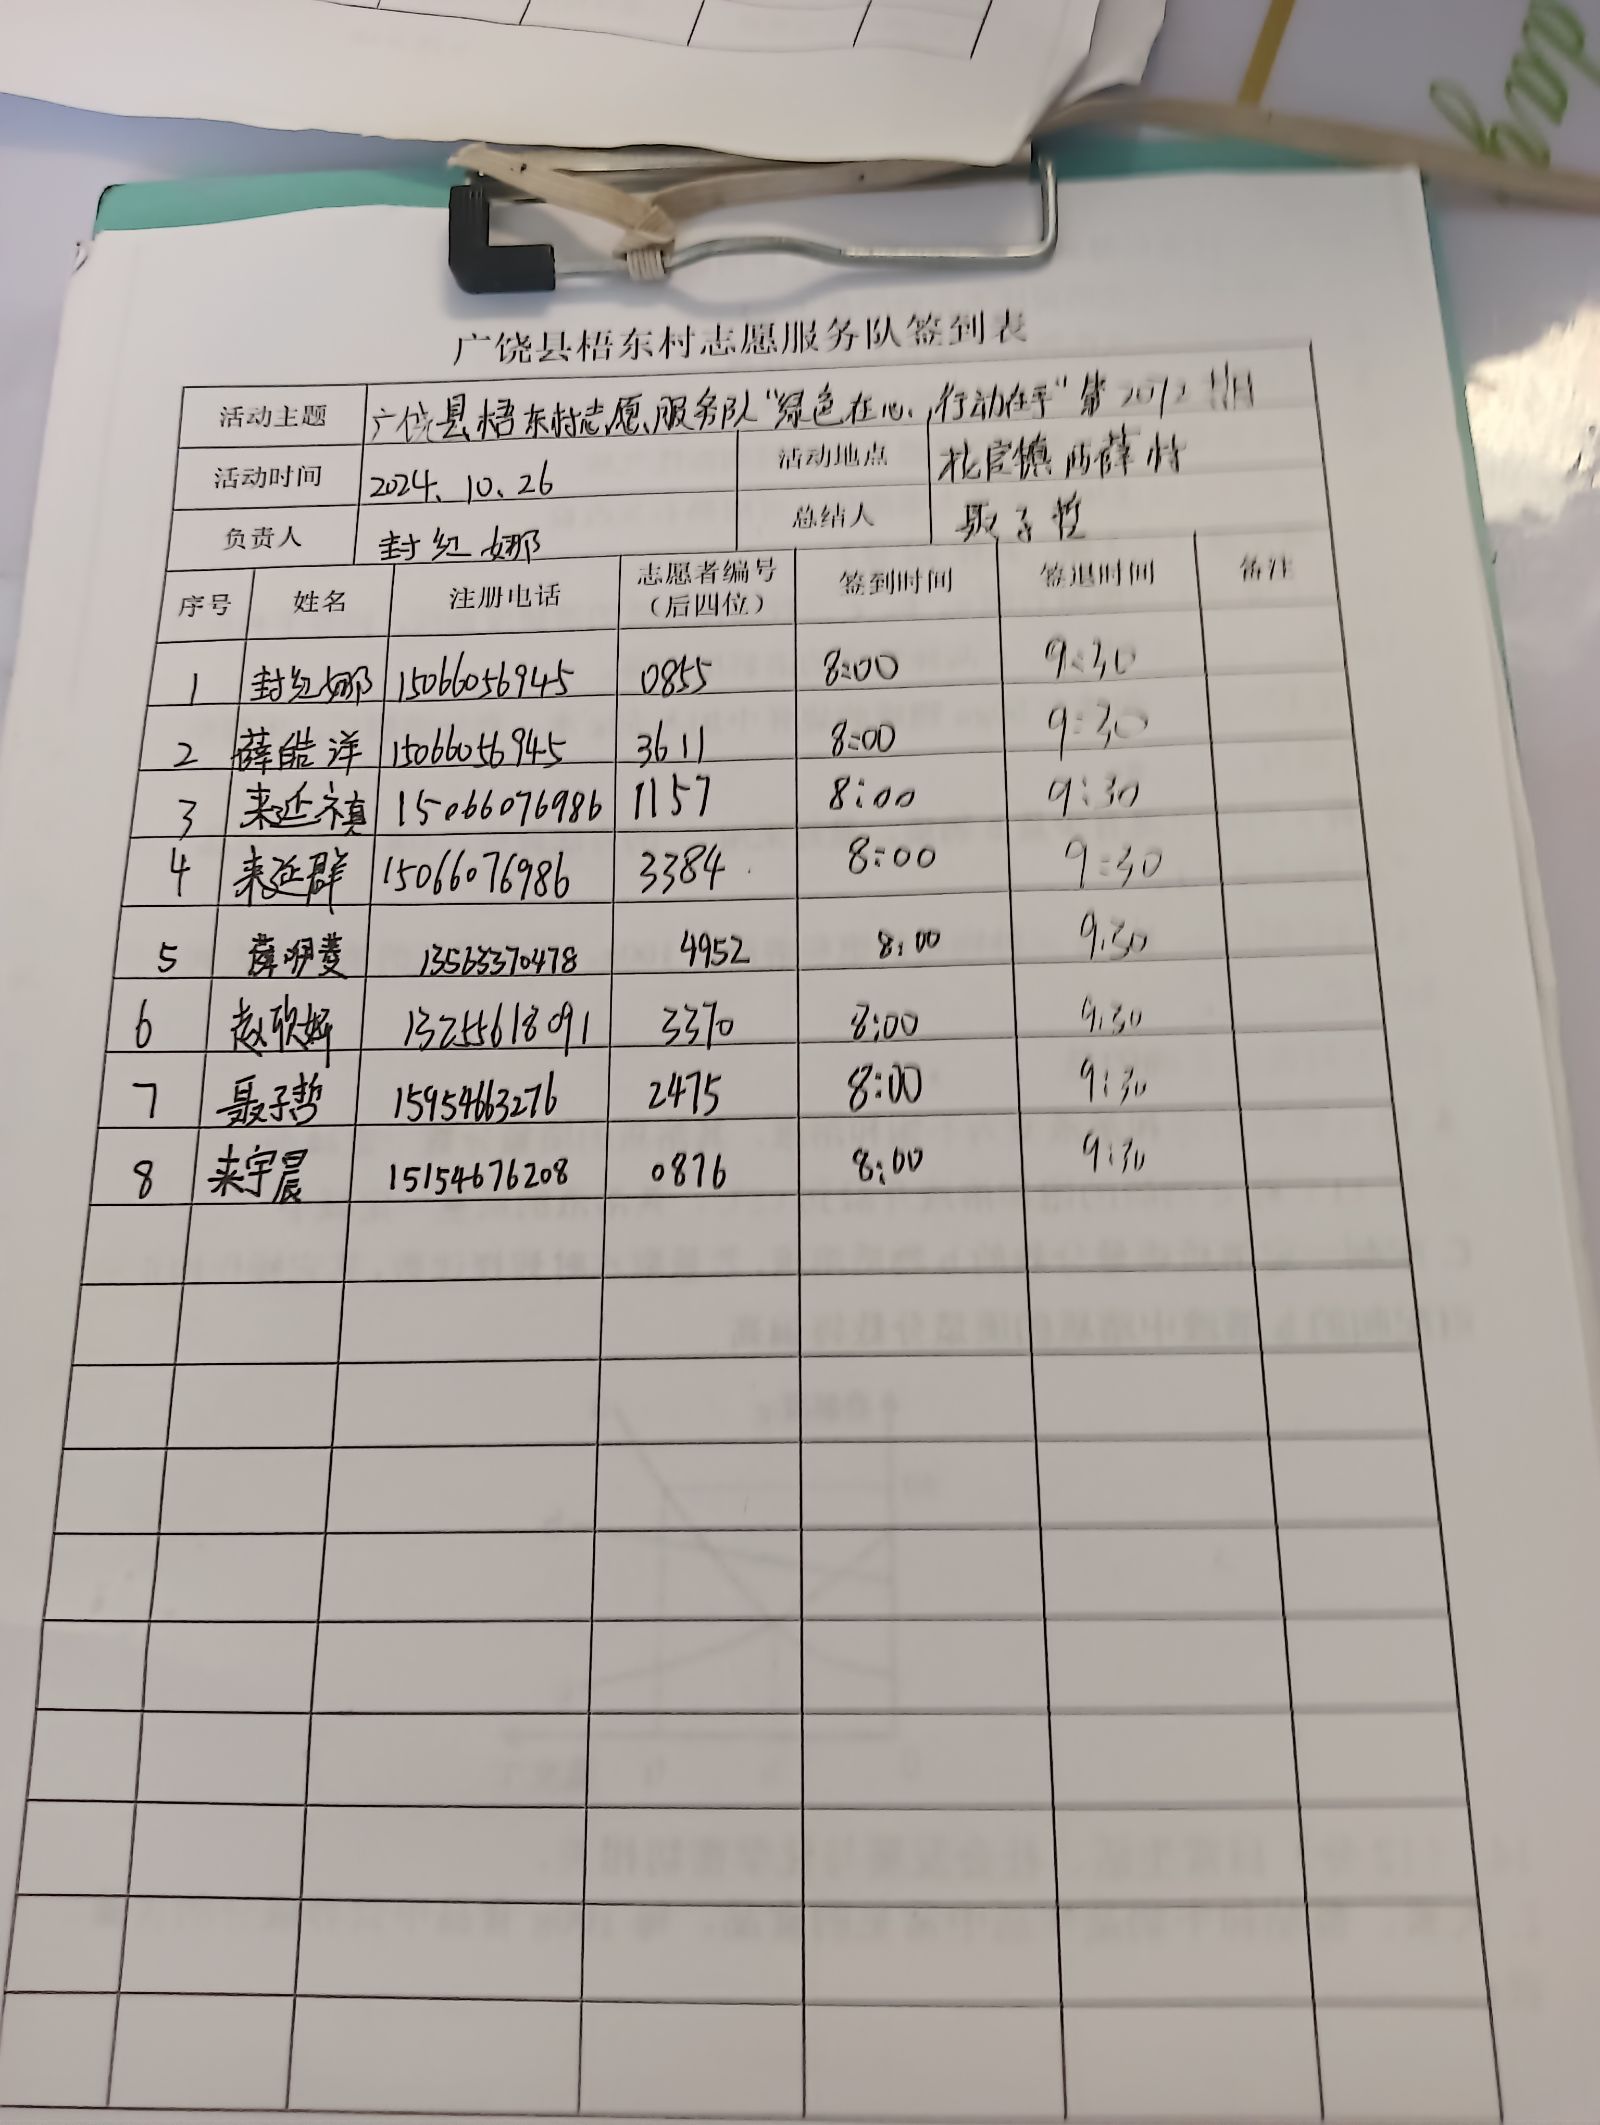 广饶县梧东村志愿服务队签到表
活动主题 广饶县梧东村志愿服务队“绿色在心、行动在手”第2072期
活动时间 2024.10.26 活动地点 西薛村
负责人 封红娜 总结人 聂子哲
序号 姓名 注册电话 志愿者编号（后四位） 签到时间 签退时间 备注
1 封红娜 15066056945 0855 8:00 9:30
2 薛皓洋 15066056945 3611 8:00 9:30
3 来延禛 15066076986 1157 8:00 9:30
4 来延群 15066076986 3384 8:00 9:30
5 薛明菱 13563370478 4952 8:00 9:30
6 赵欣妍 13255618091 3370 8:00 9:30
7 聂子哲 15954663276 2475 8:00 9:30
8 来宇晨 15154676208 0876 8:00 9:30